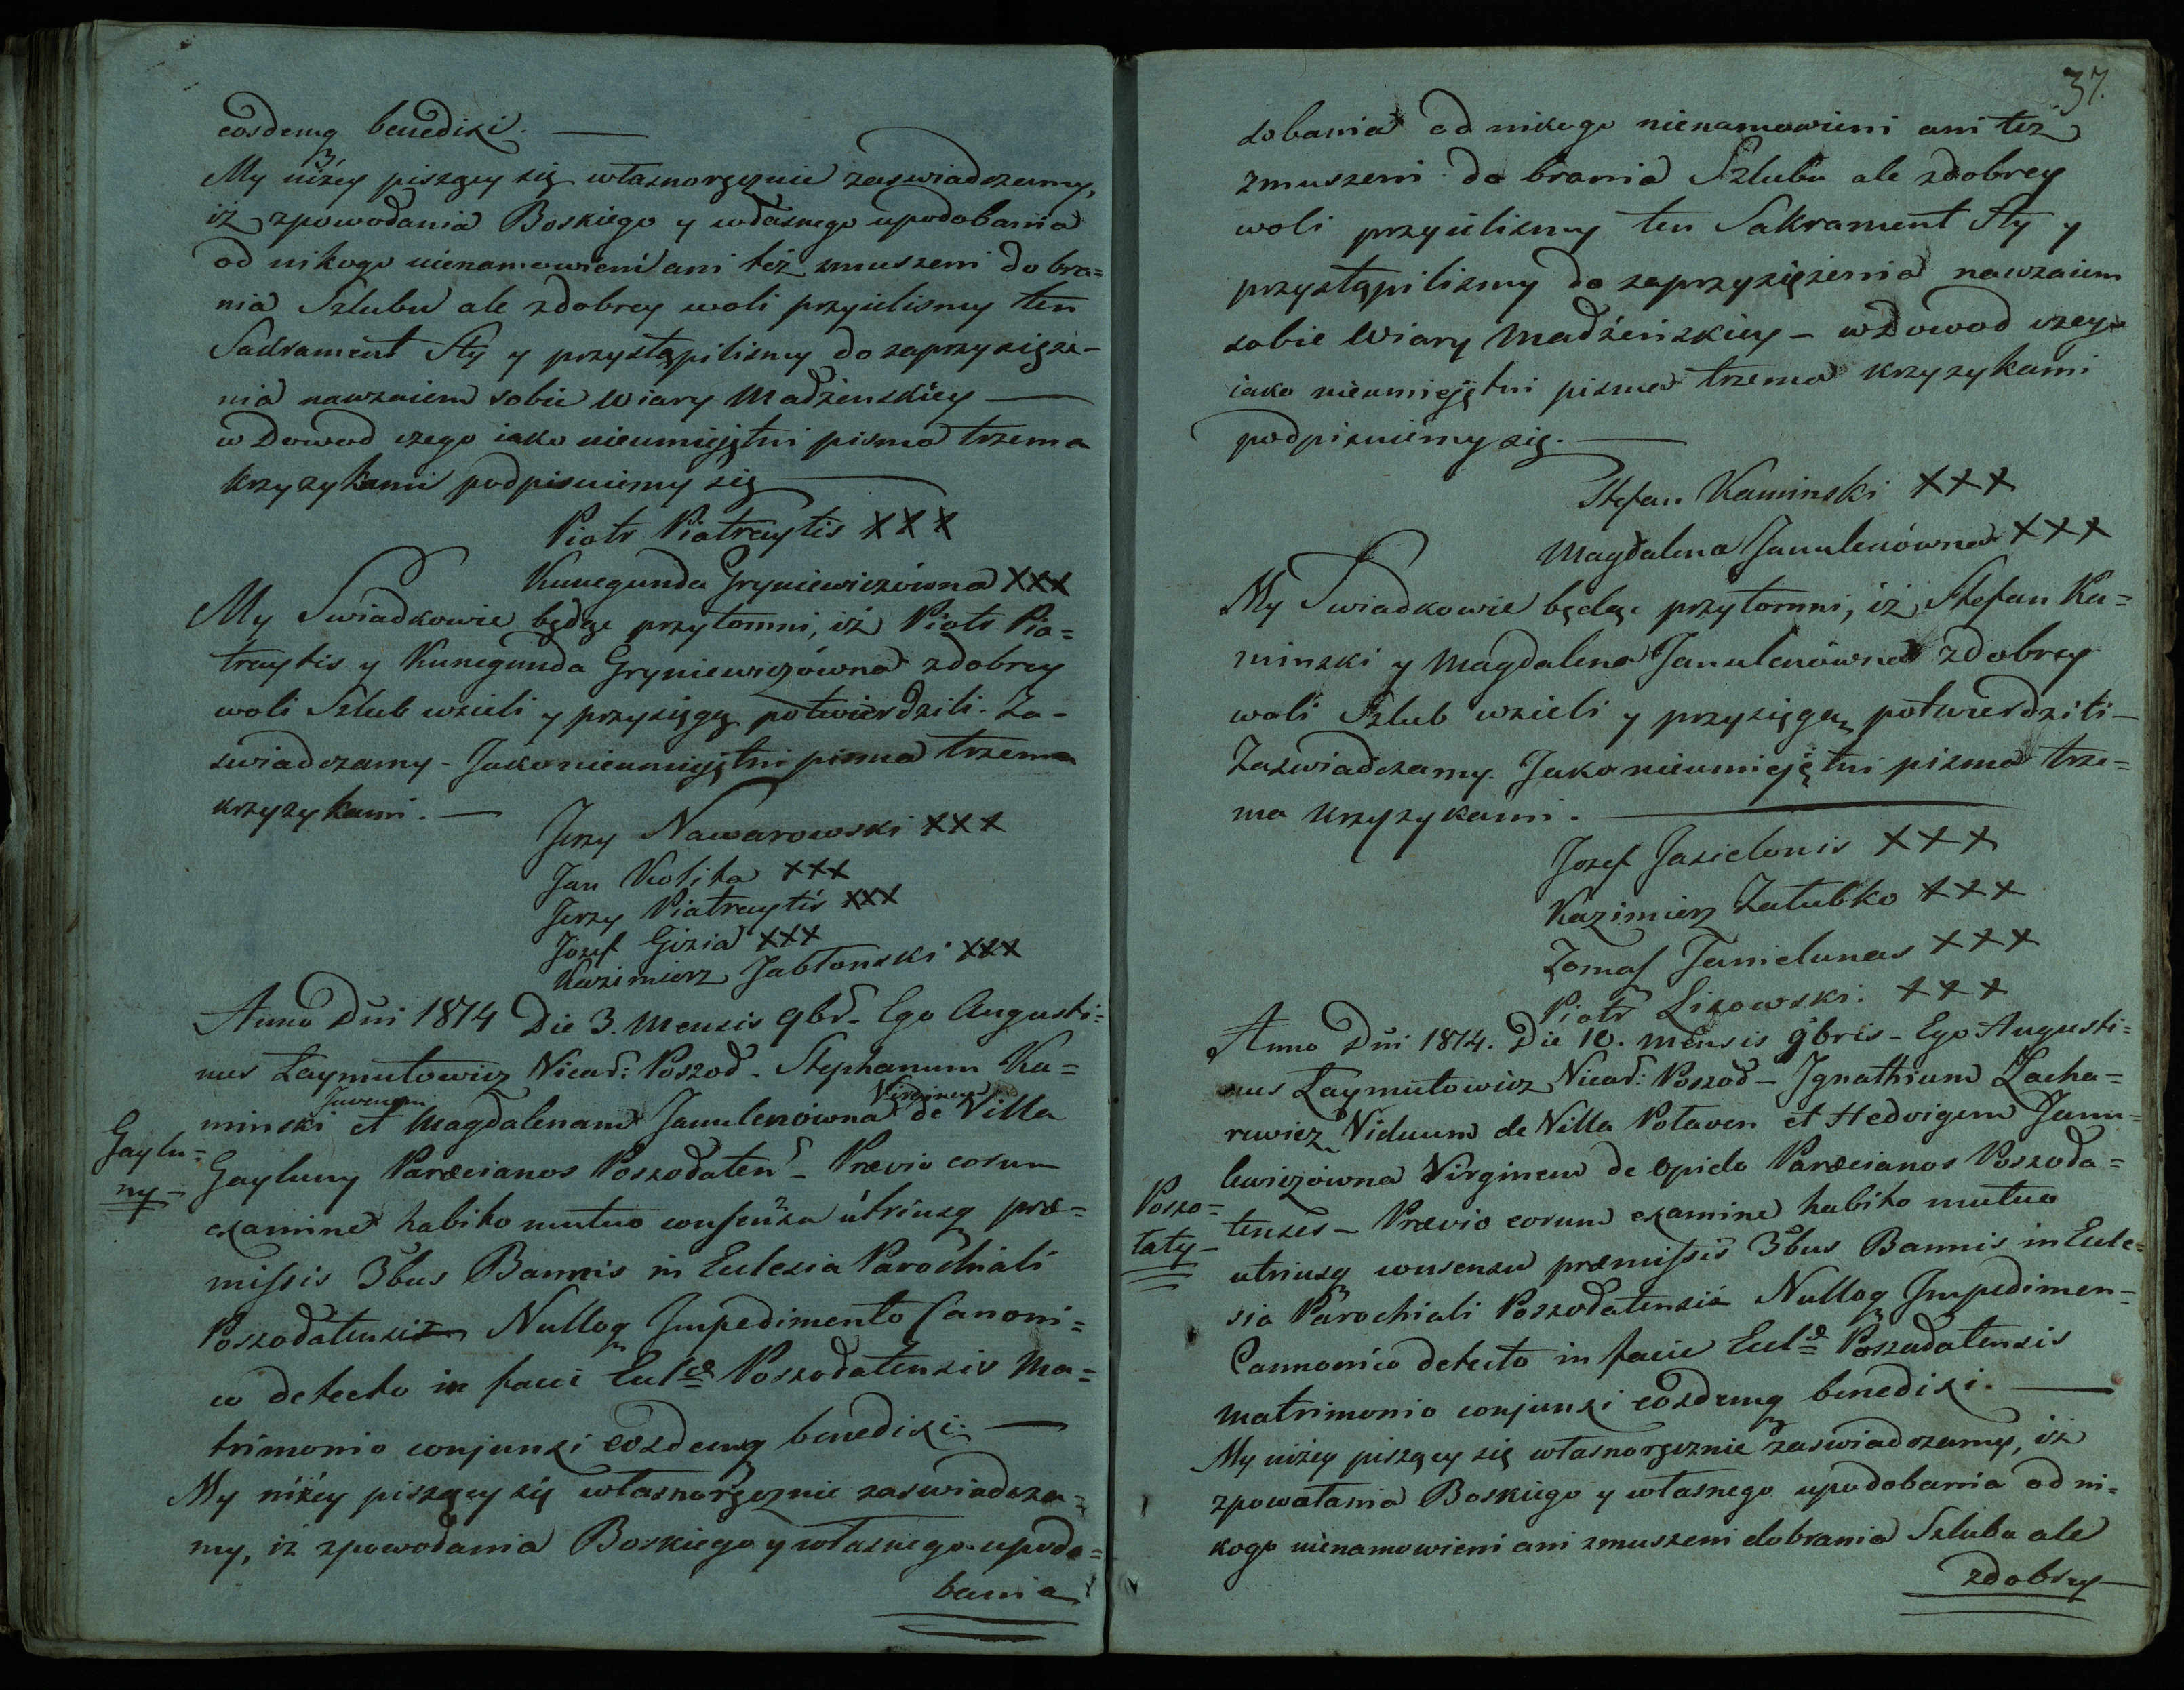 eosdemq benedixi. —
My niżey piszący się własnoręcznie zaswiadczamy,
iż zpowodania Boskiego y własnego upodobania
od nikogo nienamowieni ani też zmuszeni do bra=
nia Szlubu ale zdobrey woli przyielismy ten
Sadrament Sty y przystąpilismy do zaprzysięże-
nia nawzaiem sobie Wiary Madżenskiey —
w Dowod czego iako nieumiejętni pisma trzema
krzyzykami podpisuiemy się —
Piotr Piotraytis XXX
Kunegunda Gryniewiczówna XXX
My Swiadkowie będąc przytomni, iż Piotr Pio=
traytis y Kunegunda Gryniewiczówna zdobrey
woli Szlub wzieli y przysięgą potwierdzili. Za-
swiadczamy - Jako nieumiejętni pisma trzema
krzyzykami. —
Jerzy Nawarowski XXX
Jan Kolita XXX
Jerzy Piatraytis XXX
Józef Gizia XXX
Kazimierz Jabłonski XXX
Anno Dni 1814 Die 3. Mensis 9br. Ego Augusti=
nus Łaymutowicz Vicar: Poszod. Stephanum Ka=
minski Juvenem et Magdalenam Janulenówna Virginem de Villa
Gaylu=
ny-
Gayluny Parœcianos Poszodaten - Prævio eorum
examine habito mutuo consensu utriusq præ=
missis 3bus Bannis in Eclesia Parochiali
Poszodatensi Nulloq Impedimento Canoni=
co detecto in facie Ecl Poszodatensis Ma=
trimonio conjunxi eosdemq benedixi. —
My niżey piszący się własnoręcznie zaswiadcza=
my, iż zpowodania Boskiego y własnego upodo=
bania
37.
dobania od nikogo nienamowieni ani też
zmuszeni do brania Szlubu ale zdobrey
woli przyielismy ten Sakrament Sty y
przystąpilismy do zaprzysiężenia nawzaiem
sobie Wiary Madżeńskiey - w Dowod czego
iako nieumiejętni pisma trzema krzyzykami
podpisuiemy się. —
Stefan Kaminski XXX
Magdalena Janulenówna XXX
My Swiadkowie będąc przytomni, iż Stefan Ka=
minski y Magdalena Janulenówna zdobrey
woli Szlub wzieli y przysięgą potwierdzili -
Zaswiadczamy. Jako nieumiejętni pisma trze=
ma krzyzykami. —
Jozef Jasielonis XXX
Kazimierz Załubko XXX
Tomasz Danielunas XXX
Piotr Lisowski. XXX
Anno Dni 1814. Die 10. Mensis 9bris - Ego Augusti=
nus Łaymutowicz Vicar: Poszod - Ignathium Zacha=
rewicz Viduum de Villa Potaven et Hedvigem Janu=
lewiczówna Virginem de Opido Parœcianos Poszoda=
Poszo=
taty-
tenses - Prævio eorum examine habito mutuo
utriusq consensu præmissis 3bus Bannis in Ecle=
sia Parochiali Poszodatensi Nulloq Impedimen=
Cannonico detecto in facie Ecl Poszadatensis
Matrimonio conjunxi eosdemq benedixi. —
My niżey piszący się własnoręcznie zaswiadczamy, iż
zpowołania Boskiego y własnego upodobania od ni=
kogo nienamowieni ani zmuszeni do brania Szlubu ale
zdobrey